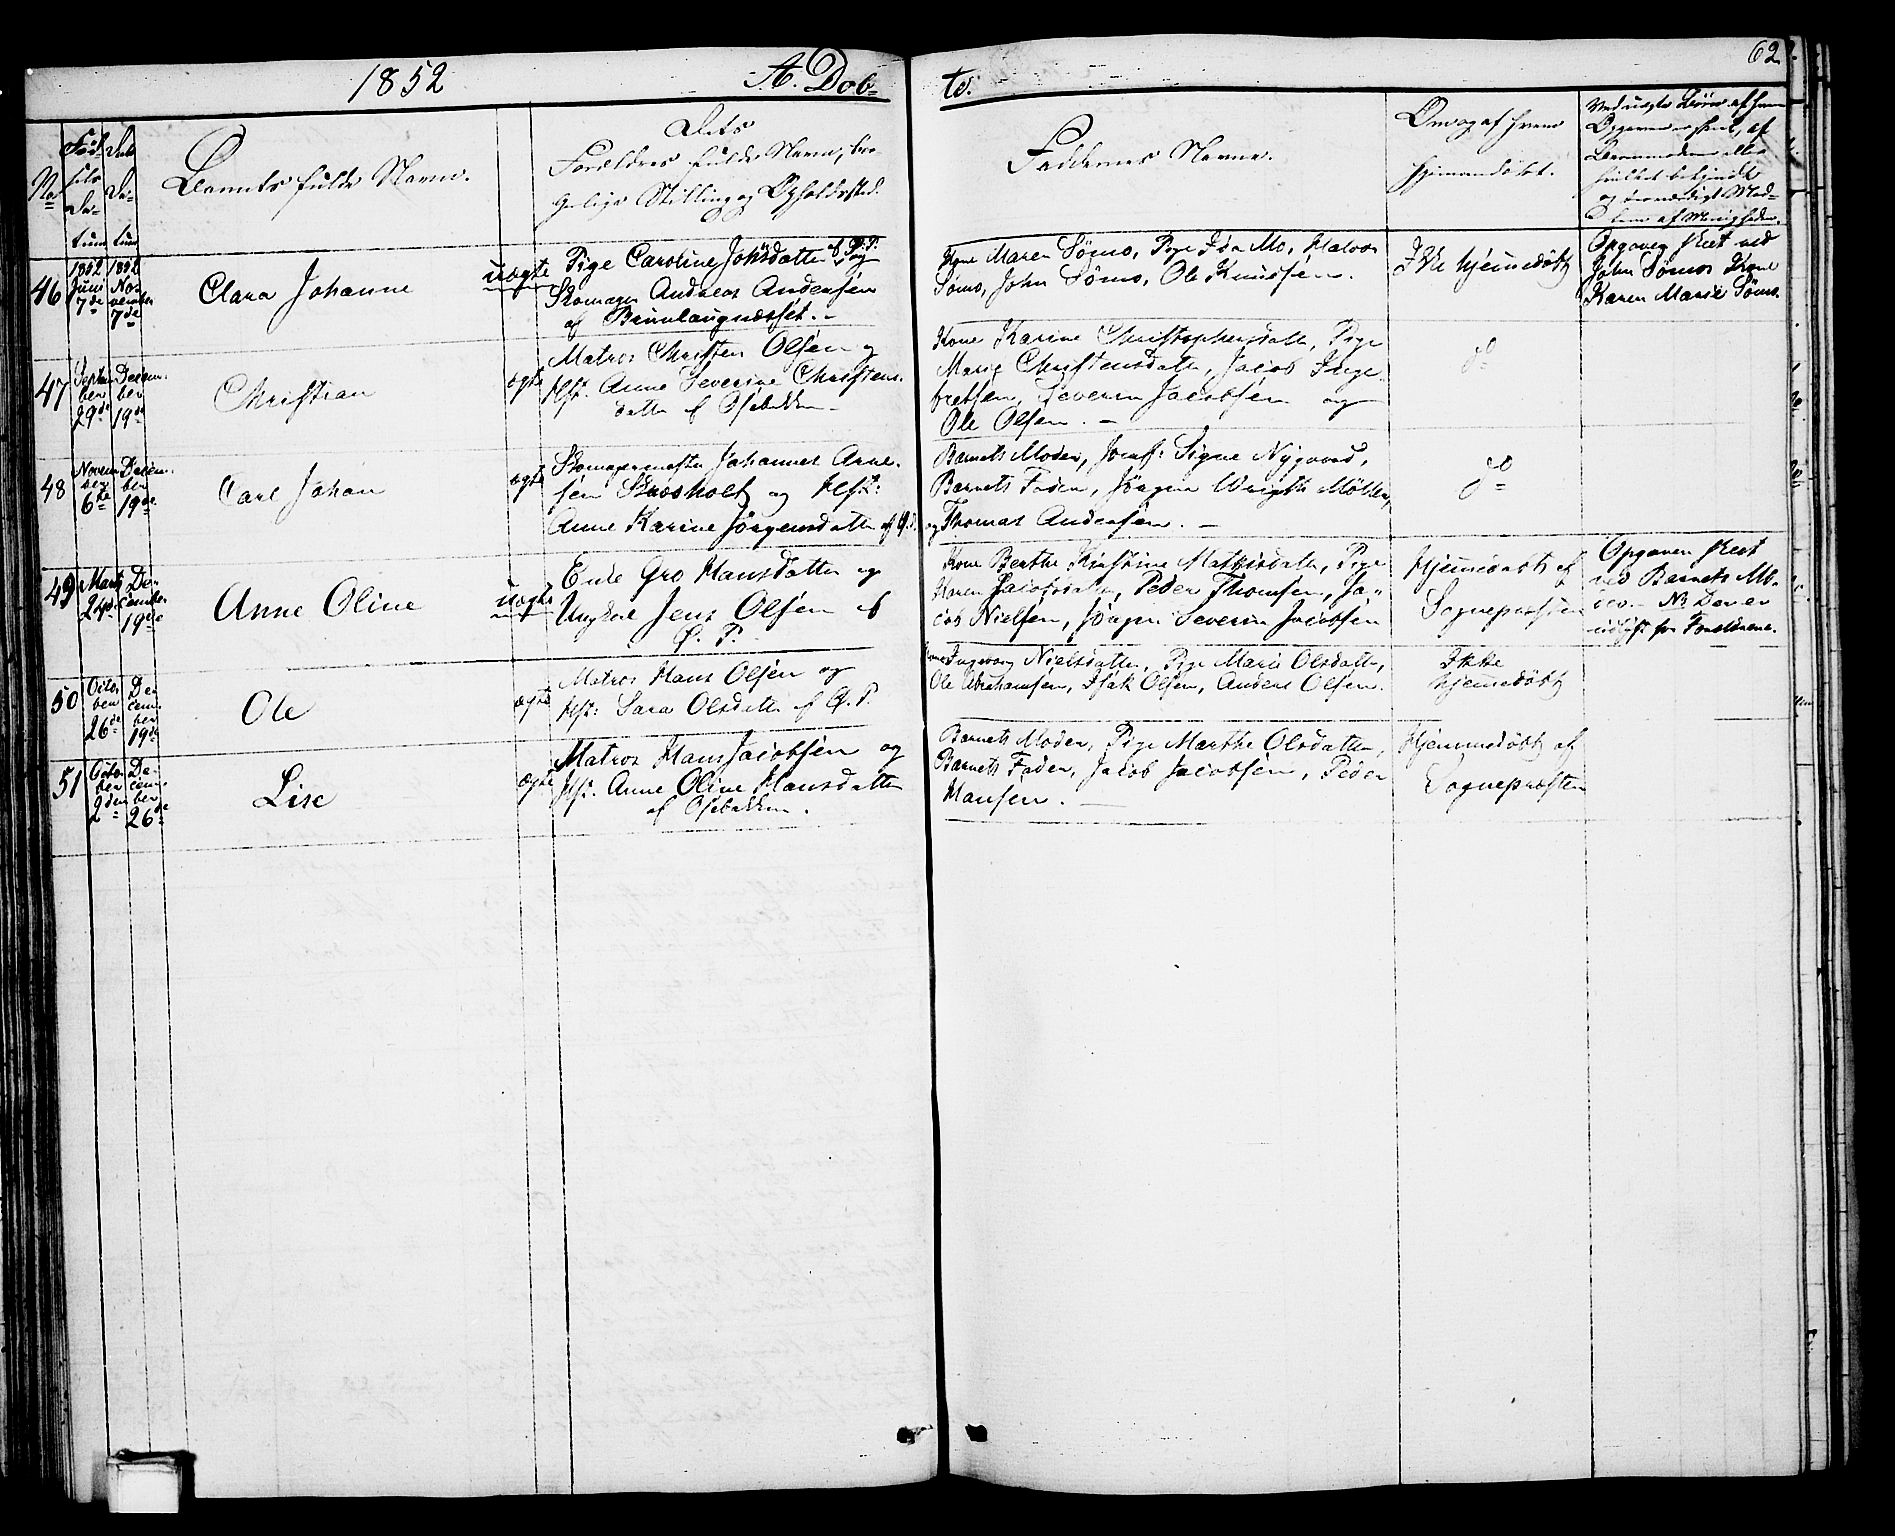 1852
A. Döb-
te.
62.
No
Fød-
sels
Da-
tum
Daabs
Da-
tum
Barnets fulde Navn.
Dets
Forældres fulde Navn, bor-
gerlige Stilling og Opholdssted.
Faddernes Navne.
Om og af hvem
hjemmedøbt.
Ved uægte Børn af hvem
Opgaven er skeet, af
Barnemoderen eller
hvilket bekjendt
og troværdigt Med-
lem af Menigheden.
46
1852
Juni
7de
1852
No-
vember
7de
Clara Johanne
uægte
Pige Caroline Johsdatter af P: P: og
Skomager Andreas Andersen
af Brunlaugnæsset. -
Kone Maren Sömo, Pige Ida Mo, Halvor
Sömo, John Sömo, Ole Knudsen.
Ikke hjemmedöbt
Opgaven skeet ved
John Sömos Kone
Karen Marie Sömo.
47
Septem-
ber
29de
Decem-
ber
19de
Christian
ægte
Matros Christen Olsen og
Hst. Anne Severine Christens-
datter af Osebakken -
Kone Karine Christophersdatt, Pige
Marie Christensdatter, Jacob Inge-
bretsen, Severin Jacobsen og
Ole Olsen. -
do
48
Novem-
ber
6te
Decem-
ber
19de
Carl Johan
ægte
Skomagermester Johannes Arne-
sen Skavsholt og Hst:
Anne Karine Jörgensdatter af P. P.
Barnets Moder, Jomf: Signe Nygaard,
Barnets Fader, Jörgen Wrigth Möller,
og Thomas Andersen. -
do
49
Marts
24de
De-
cember
19de
Anne Oline
uægte
Enke Gro Hansdatter og
Ungkarl Jens Olsen af
P. P.
Kone Berthe Kirstine Mathisdatter, Pige
Karen Jacobsdatter, Peder Thomsen, Ja-
cob Nielsen, Jörgen Severin Jacobsen
Hjemmedöbt af
Sognepresten
Opgaven skeet
ved Barnets Mo-
der. - NB. Den er
udlyst for Forældrene.
50
Octo-
ber
26de
De-
cem-
ber
19de
Ole
ægte
Matros Hans Olsen og
Hst: Sara Olsdatter af P. P.
Kone Ingeborg Nielsdatter, Pige Marie Olsdatter,
Ole Abrahamsen, Isak Olsen, Anders Olsen.
Ikke
hjemmedöbt
51
Octo-
ber
2den
De-
cem-
ber
26de
Lise
ægte
Matros Hans Jacobsen og
Hst. Anne Oline Hansdatter
af Osebakken.
Barnets Moder, Pige Marthe Olsdatter,
Barnets Fader, Jacob Jacobsen, Peder
Hansen. -
Hjemmedöbt af
Sognepræsten